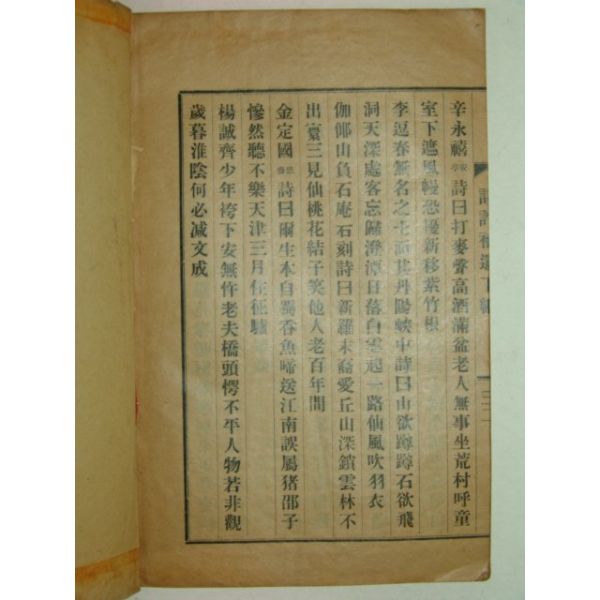 辛永禧安亭詩曰打麥聲高酒滿盆老人無事坐荒村呼童
室下遮風幔恐擾新移紫竹根
李逗春無名之士而其丹陽峽中詩曰山欲蹲蹲石欲飛
洞天深處客忘歸澄潭日落白雲起一路仙風吹羽衣
伽倻山負石庵石刻詩曰新羅末裔愛丘山深鎖雲林不
出寰三見仙桃花結子笑他人老百年間
金定國詩曰爾生本自蜀呑魚啼送江南誤屬猪邵子
慘然聽不樂天津三月住征驢
楊誠齊少年袴下安無忤老夫橋頭愕不平人物若非觀
歲暮淮陰何必减文成